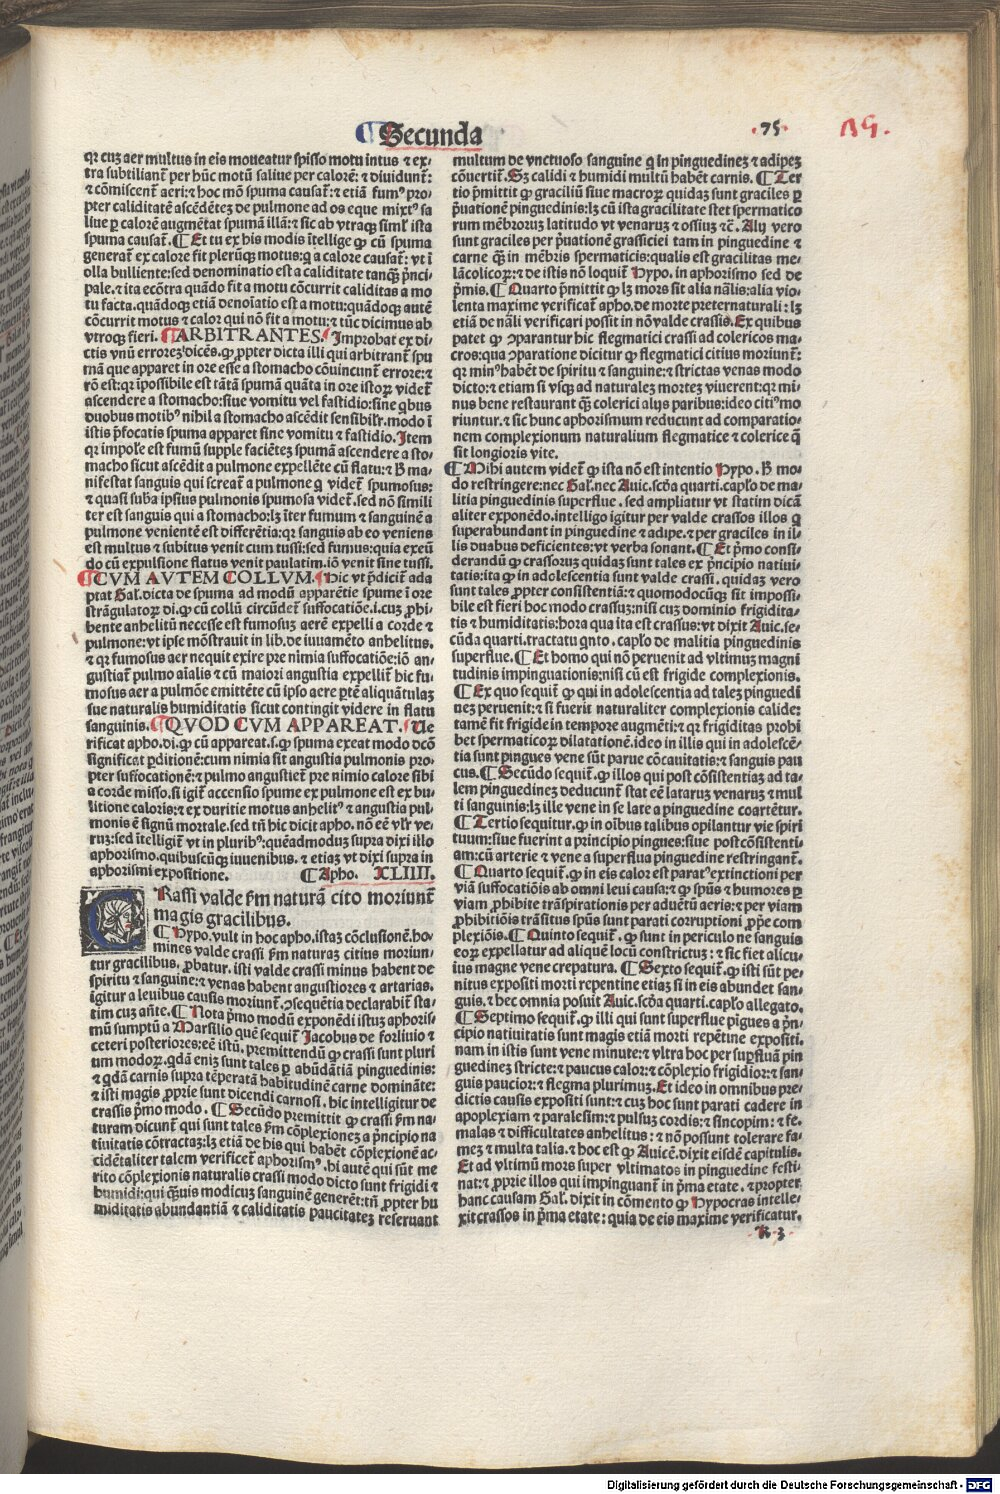 Secunda
75
qꝛ cuz aer multus in eis moueatur spisso motu intus ⁊ ex-
tra subtiliant̃ per hũc motũ saliue per calorẽ: ⁊ diuidunt̃:
⁊ cõmiscent̃ aeri: ⁊ hoc mõ spuma causat̃: ⁊ etiã fumꝰ pro-
pter caliditatẽ ascẽdẽtez de pulmone ad os eque mixtꝰ sa
liue ꝑ calorẽ augmẽtat spumã illã: ⁊ sic ab vtraqꝫ simłʼ ista
spuma causat̃. ¶ Et tu ex his modis ĩtellige ꝙ cũ spuma
generat̃ ex calore fit pleruqꝫ motus: q̃ a calore causat̃: vt ĩ
olla bulliente: sed denominatio est a caliditate tanqꝫ p̃nci-
pale. ⁊ ita ecõtra quãdo fit a motu cõcurrit caliditas a mo
tu facta. quãdoqꝫ etiã denoĩatio est a motu: quãdoqꝫ autẽ
cõcurrit motus ⁊ calor qui nõ fit a motu: ⁊ tũc dicimus ab
vtroqꝫ fieri. ¶ ARBITRANTES. Improbat ex di-
ctis vnũ errorez dicẽs. ꝙ ꝓpter dicta illi qui arbitrant̃ spu
mã que apparet in ore esse a stomacho cõuincunt̃ errore: ⁊
rõ est: qꝛ ĩpossibile est tãtã spumã quãta in ore istoꝝ videt̃
ascendere a stomacho: siue vomitu vel fastidio: sine qbus
duobus motibꝰ nihil a stomacho ascẽdit sensibiłr. modo ĩ
istis p̃focatis spuma apparet sine vomitu ⁊ fastidio. Item
qꝛ impołe est fumũ supple faciẽtez spumã ascendere a sto-
macho sicut ascẽdit a pulmone expellẽte cũ flatu: ⁊ ꝶ ma-
nifestat sanguis qui screat̃ a pulmone q̃ videt̃ spumosus:
⁊ quasi suba ipsius pulmonis spumosa videt̃. sed nõ simili
ter est sanguis qui a stomacho: lꝫ ĩter fumum ⁊ sanguinẽ a
pulmone venientẽ est differẽtia: qꝛ sanguis ab eo veniens
est multus ⁊ subitus venit cum tussi: sed fumus: quia exeũ
do cũ expulsione flatus venit paulatim. iõ venit sine tussi.
¶ CVM AVTEM COLLVM. Hic vt p̃dicit̃ ada
ptat Gal. dicta de spuma ad modũ apparẽtie spume ĩ ore
strãgulatoꝝ di. ꝙ cũ collũ circũdet̃ suffocatiõe. i. cuz ꝓhi-
bente anhelitũ necesse est fumosuz aerẽ expelli a corde ⁊
pulmone: vt ipse mõstrauit in lib. de iuuamẽto anhelitus.
⁊ qꝛ fumosus aer nequit exire pre nimia suffocatiõe: iõ an-
gustiat̃ pulmo aĩalis ⁊ cũ maiori angustia expellit̃ hic fu-
mosus aer a pulmõe emittẽte cũ ipso aere ꝑtẽ aliquãtulaz
sue naturalis humiditatis sicut contingit videre in flatu
sanguinis. ¶ QVOD CVM APPAREAT. Ue
rificat apho. di. ꝙ cũ appareat. s. ꝙ spuma exeat modo dcõ
significat ꝑditionẽ: cum nimia sit angustia pulmonis pro-
pter suffocationẽ: ⁊ pulmo angustiet̃ pre nimio calore sibi
a corde misso. si igit̃ accensio spume ex pulmone est ex bu-
litione caloris: ⁊ ex duritie motus anhelitꝰ ⁊ angustia pul-
monis ẽ signũ mortale. sed tñ hic dicit apho. nõ eẽ vłr ve-
ruz: sed ĩtelligit̃ vt in pluribꝰ: quẽadmoduz supra dixi illo
aphorismo. quibuscũqꝫ iuuenibus. ⁊ etiaz vt dixi supra in
aphorismi expositione. ¶ Apho. XLIIII.
CRassi valde ẜm naturã cito moriunt̃
magis gracilibus.
¶ Hypo. vult in hoc apho. istaz cõclusionẽ. ho-
mines valde crassi ẜm naturaz citius moriun-
tur gracilibus. ꝓbatur. isti valde crassi minus habent de
spiritu ⁊ sanguine: ⁊ venas habent angustiores ⁊ artarias.
igitur a leuibus causis moriunt̃. ꝯsequẽtia declarabit̃ sta-
tim cuz añte. ¶ Nota p̃mo modũ exponẽdi istuz aphoris-
mũ sumptũ a Marsilio quẽ sequit̃ Jacobus de forliuio ⁊
ceteri posteriores: eẽ istũ. premittendũ ꝙ crassi sunt pluri
um modoꝝ. qdã eniz sunt tales ꝑ abũdãtiã pinguedinis:
⁊ qdã carnis supra tẽperatã habitudinẽ carne dominãte:
⁊ isti magis ꝓprie sunt dicendi carnosi. hic intelligitur de
crassis p̃mo modo. ¶ Secũdo premittit ꝙ crassi ẜm na-
turam dicunt̃ qui sunt tales ẜm cõplexiones a p̃ncipio na
tiuitatis cõtractaz: lꝫ etiã de his qui habẽt cõplexionẽ ac-
cidẽtaliter talem verificet̃ aphorismꝰ. hi autẽ qui sũt me
rito cõplexionis naturalis crassi modo dicto sunt frigidi ⁊
humidi: qui qꝫuis modicuz sanguinẽ generẽt: tñ ꝓpter hu
miditatis abundantiã ⁊ caliditatis paucitatez reseruant
multum de vnctuoso sanguine q̃ in pinguedinez ⁊ adipez
cõuertit̃. Sꝫ calidi ⁊ humidi multũ habẽt carnis. ¶ Ter
tio p̃mittit ꝙ graciliũ siue macroꝝ quidaz sunt graciles ꝑ
p̃uationẽ pinguedinis: lꝫ cũ ista gracilitate stet spermatico
rum mẽbroruz latitudo vt venaruz ⁊ ossiuz ⁊c̃. Alij vero
sunt graciles per p̃uationẽ grassiciei tam in pinguedine ⁊
carne qꝫ in mẽbris spermaticis: qualis est gracilitas me-
lãcolicoꝝ: ⁊ de istis nõ loquit̃ Hypo. in aphorismo sed de
p̃mis. ¶ Quarto p̃mittit ꝙ lꝫ mors sit alia nãlis: alia vio-
lenta maxime verificat̃ apho. de morte preternaturali: lꝫ
etiã de nãli verificari possit in nõ valde crassis. Ex quibus
patet ꝙ ꝯparantur hic flegmatici crassi ad colericos ma-
cros: qua ꝯparatione dicitur ꝙ flegmatici citius moriunt̃:
qꝛ minꝰ habẽt de spiritu ⁊ sanguine: ⁊ strictas venas modo
dicto: ⁊ etiam si vsqꝫ ad naturalez mortez viuerent: qꝛ mi-
nus bene restaurant̃ qꝫ colerici alijs paribus: ideo citiꝰ mo
riuntur. ⁊ sic hunc aphorismum reducunt ad comparatio-
nem complexionum naturalium flegmatice ⁊ colerice q̃
sit longioris vite.
¶ Mihi autem videt̃ ꝙ ista nõ est intentio Hypo. ꝶ mo-
do restringere: nec Gal. nec Auic. scḋa quarti. capło de ma-
litia pinguedinis superflue. sed ampliatur vt statim dicã
aliter exponẽdo. intelligo igitur per valde crassos illos q̃
superabundant in pinguedine ⁊ adipe. ⁊ per graciles in il-
lis duabus deficientes: vt verba sonant. ¶ Et p̃mo consi-
derandũ ꝙ crassoruz quidaz sunt tales ex p̃ncipio natiui-
tatis: ita ꝙ in adolescentia sunt valde crassi. quidaz vero
sunt tales ꝓpter consistentiã: ⁊ quomodocũqꝫ sit impossi-
bile est fieri hoc modo crassuz: nisi cuz dominio frigidita-
tis ⁊ humiditatis: hora qua ita est crassus: vt dixit Auic. se-
cũda quarti. tractatu qnto. capło de malitia pinguedinis
superflue. ¶ Et homo qui nõ peruenit ad vltimuz magni
tudinis impinguationis: nisi cũ est frigide complexionis.
¶ Ex quo sequit̃ ꝙ qui in adolescentia ad talez pinguedi
nez peruenit: ⁊ si fuerit naturaliter complexionis calide:
tamẽ fit frigide in tempore augmẽti: ⁊ qꝛ frigiditas prohi
bet spermaticoꝝ dilatationẽ. ideo in illis qui in adolescẽ-
tia sunt pingues vene sũt parue cõcauitatis: ⁊ sanguis pau
cus. ¶ Secũdo sequit̃. ꝙ illos qui post cõsistentiaz ad ta-
lem pinguedinez deducunt̃ stat eẽ lataruz venaruz ⁊ mul
ti sanguinis: lꝫ ille vene in se late a pinguedine coartẽtur.
¶ Tertio sequitur. ꝙ in oĩbus talibus opilantur vie spiri
tuum: siue fuerint a principio pingues: siue postcõsistenti-
am: cũ arterie ⁊ vene a superflua pinguedine restringant̃.
¶ Quarto sequit̃. ꝙ in eis calor est paratꝰ extinctioni per
viã suffocatiõis ab omni leui causa: ⁊ ꝙ spũs ⁊ humores ꝑ
viam ꝓhibite trãspirationis per aduẽtũ aeris: ⁊ per viam
ꝓhibitiõis trãsitus spũs sunt parati corruptioni ꝓp̃e com
plexiõis. ¶ Quinto sequit̃. ꝙ sunt in periculo ne sanguis
eoꝝ expellatur ad aliquẽ locũ constrictuz: ⁊ sic fiet alicu-
ius magne vene crepatura. ¶ Sexto sequit̃. ꝙ isti sũt pe-
nitus expositi morti repentine etiaz si in eis abundet san-
guis. ⁊ hec omnia posuit Auic. scḋa quarti. capło allegato.
¶ Septimo sequit̃. ꝙ illi qui sunt superflue pigues a p̃n-
cipio natiuitatis sunt magis etiã morti repẽtine expositi.
nam in istis sunt vene minute: ⁊ vltra hoc per suꝑfluã pin
guedinez stricte: ⁊ paucus calor: ⁊ cõplexio frigidior: ⁊ san-
guis paucior: ⁊ flegma plurimuz. Et ideo in omnibus pre-
dictis causis expositi sunt: ⁊ cuz hoc sunt parati cadere in
apoplexiam ⁊ paralesim: ⁊ pulsuz cordis: ⁊ sincopim: ⁊ fe.
malas ⁊ difficultates anhelitus: ⁊ nõ possunt tolerare fa-
mez ⁊ multa talia. ⁊ hoc est ꝙ Auicẽ. dixit eisdẽ capitulis.
Et ad vltimũ mors super vltimatos in pinguedine festi-
nat: ⁊ ꝓprie illos qui impinguant̃ in p̃ma etate. ⁊ propter
hanc causam Gal. dixit in cõmento ꝙ Hypocras intelle-
xit crassos in p̃ma etate: quia de eis maxime verificatur.
K 3
Digitalisierung gefördert durch die Deutsche Forschungsgemeinschaft - DFG